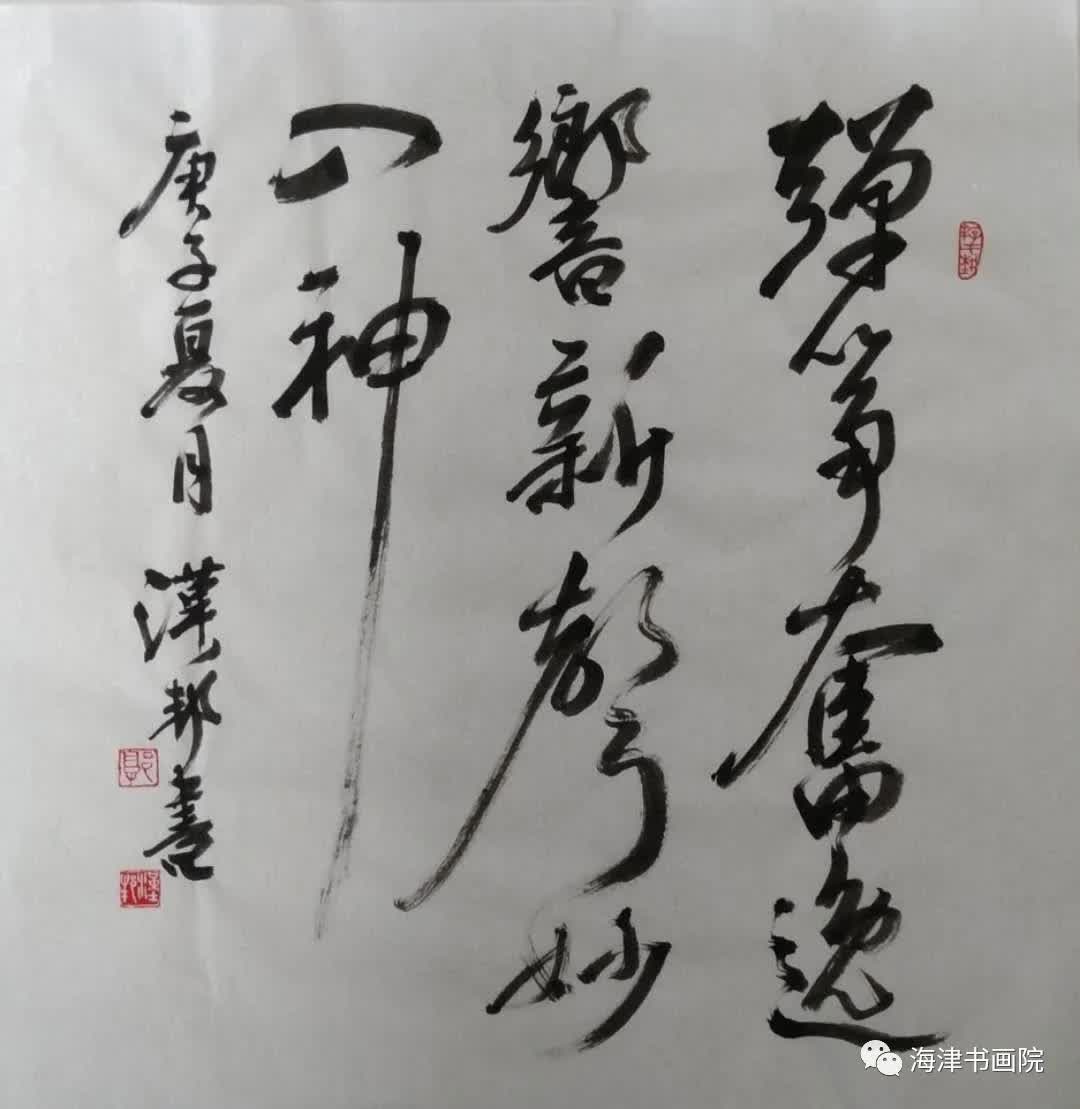 彈箏奮逸
響新聲妙
入神
庚子夏月 漢邦書
海津书画院